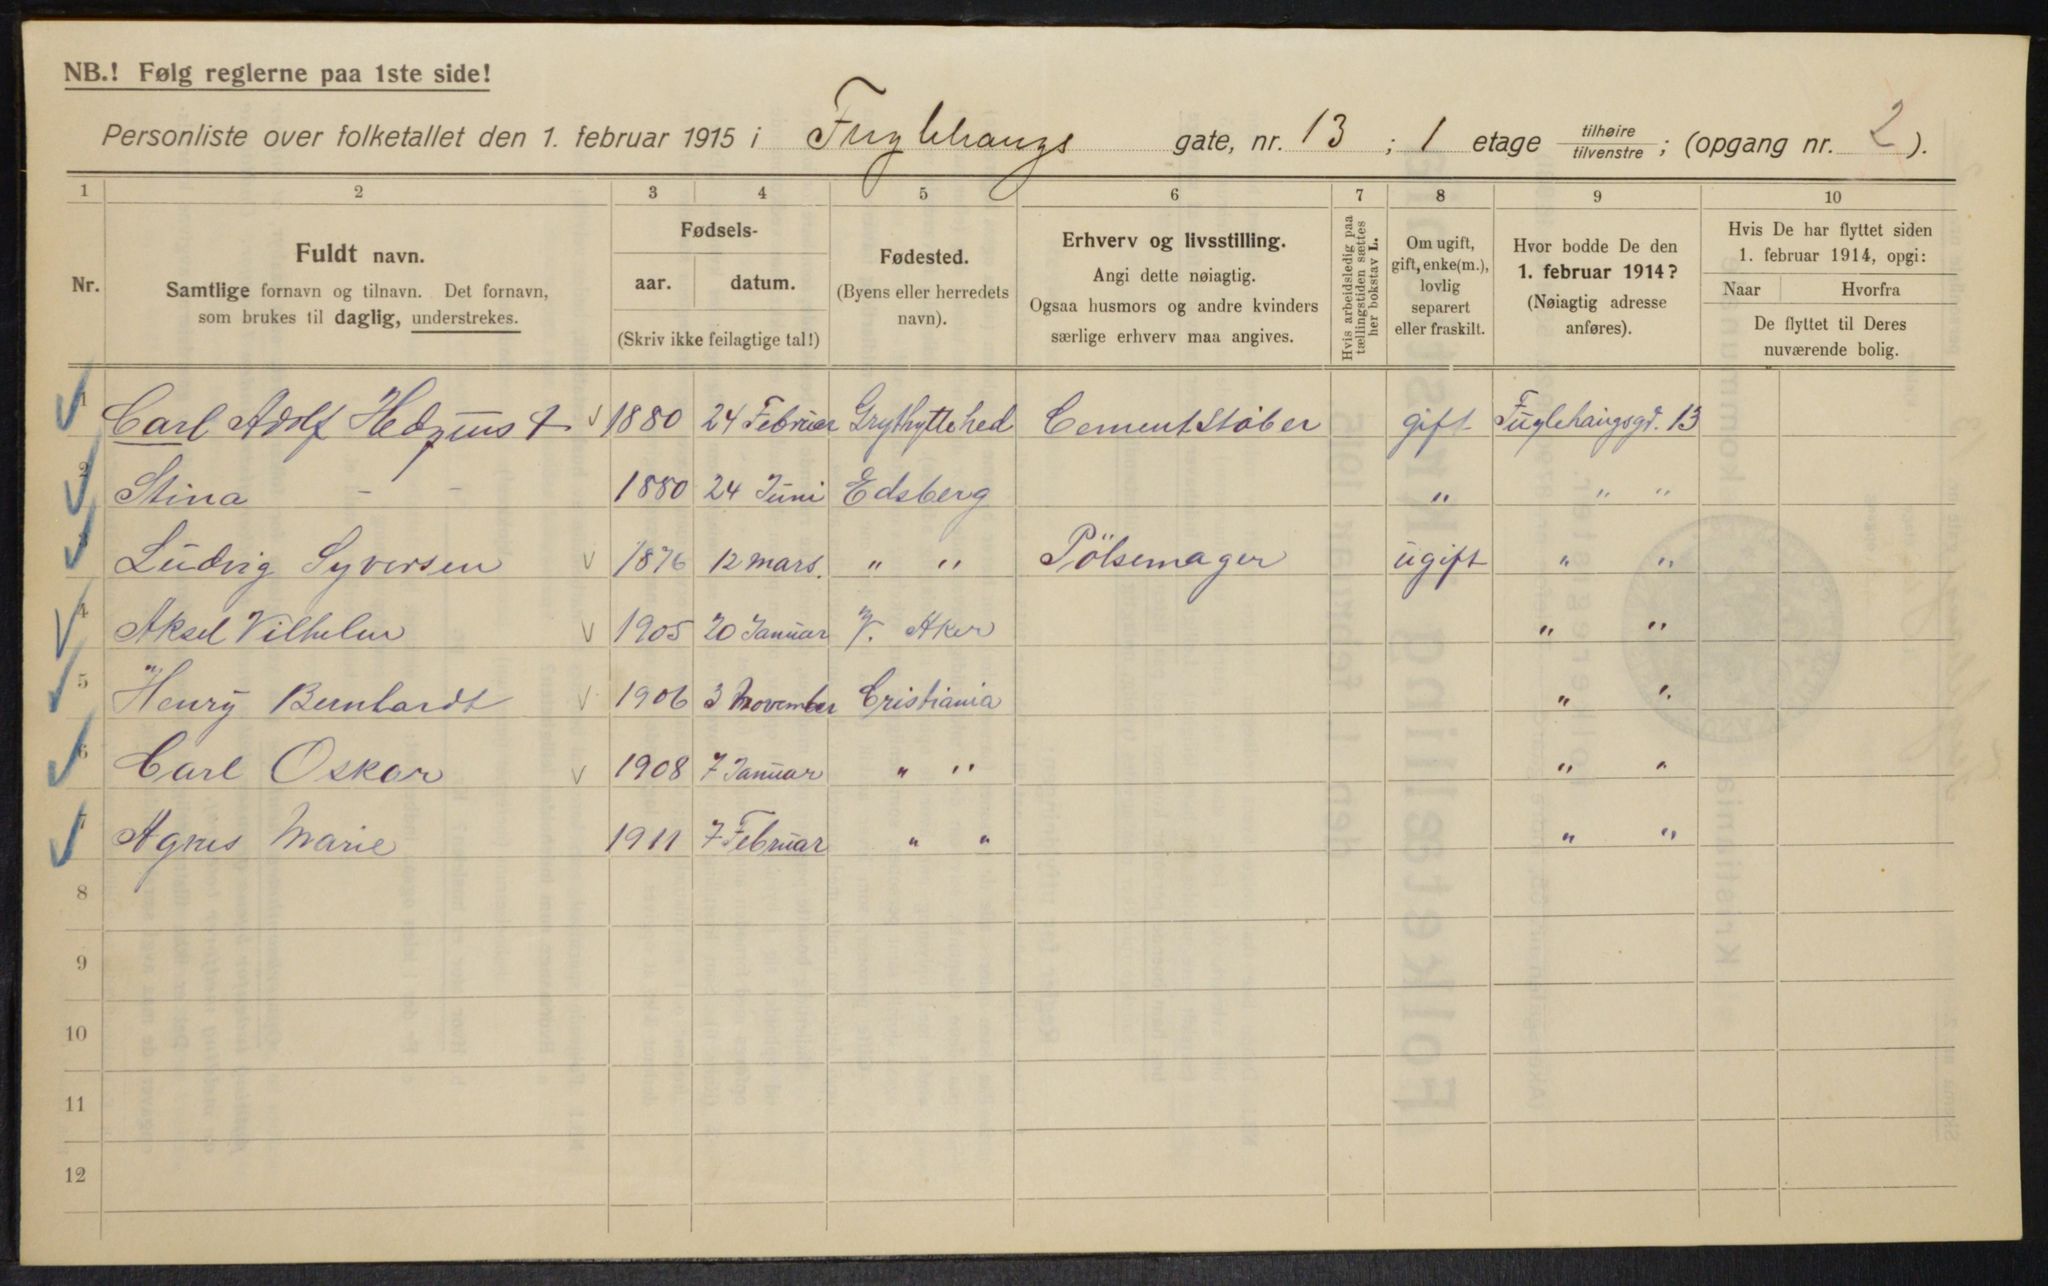 NB.! Følg reglerne paa 1ste side!
Personliste over folketallet den 1. februar 1915 i Fuglehaugs gate, nr. 13 ; 1 etage tilhøire tilvenstre ; (opgang nr. 2 ).
1 2 3 4 5 6 7 8 9 10
Nr.
Fuldt navn.
Samtlige fornavn og tilnavn. Det fornavn,
som brukes til daglig, understrekes.
Fødsels-
aar. datum.
(Skriv ikke feilagtige tal!)
Fødested.
(Byens eller herredets
navn).
Erhverv og livsstilling.
Angi dette nøiagtig.
Ogsaa husmors og andre kvinders
særlige erhverv maa angives.
Hvis arbeidsledig paa
tællingstiden sættes
her bokstav L.
Om ugift,
gift, enke(m.),
lovlig
separert
eller fraskilt.
Hvor bodde De den
1. februar 1914?
(Nøiagtig adresse
anføres).
Hvis De har flyttet siden
1. februar 1914, opgi:
Naar Hvorfra
De flyttet til Deres
nuværende bolig.
1 Carl Adolf 1880 24 Februar Grythyttehed Cementstöber gift Fuglehaugsgd. 13
2 Stina - - 1880 24 Juni Edsberg " " "
3 Ludvig Syversen 1876 12 mars. " " Pölsemager ugift " "
4 Aksel Vilhelm 1905 20 Januar V. Aker " "
5 Henry Bernhardt 1906 3 November Cristiania " "
6 Carl Oskar 1908 7 Januar " " " "
7 Agnes Marie 1911 7 Februar " " " "
8
9
10
11
12